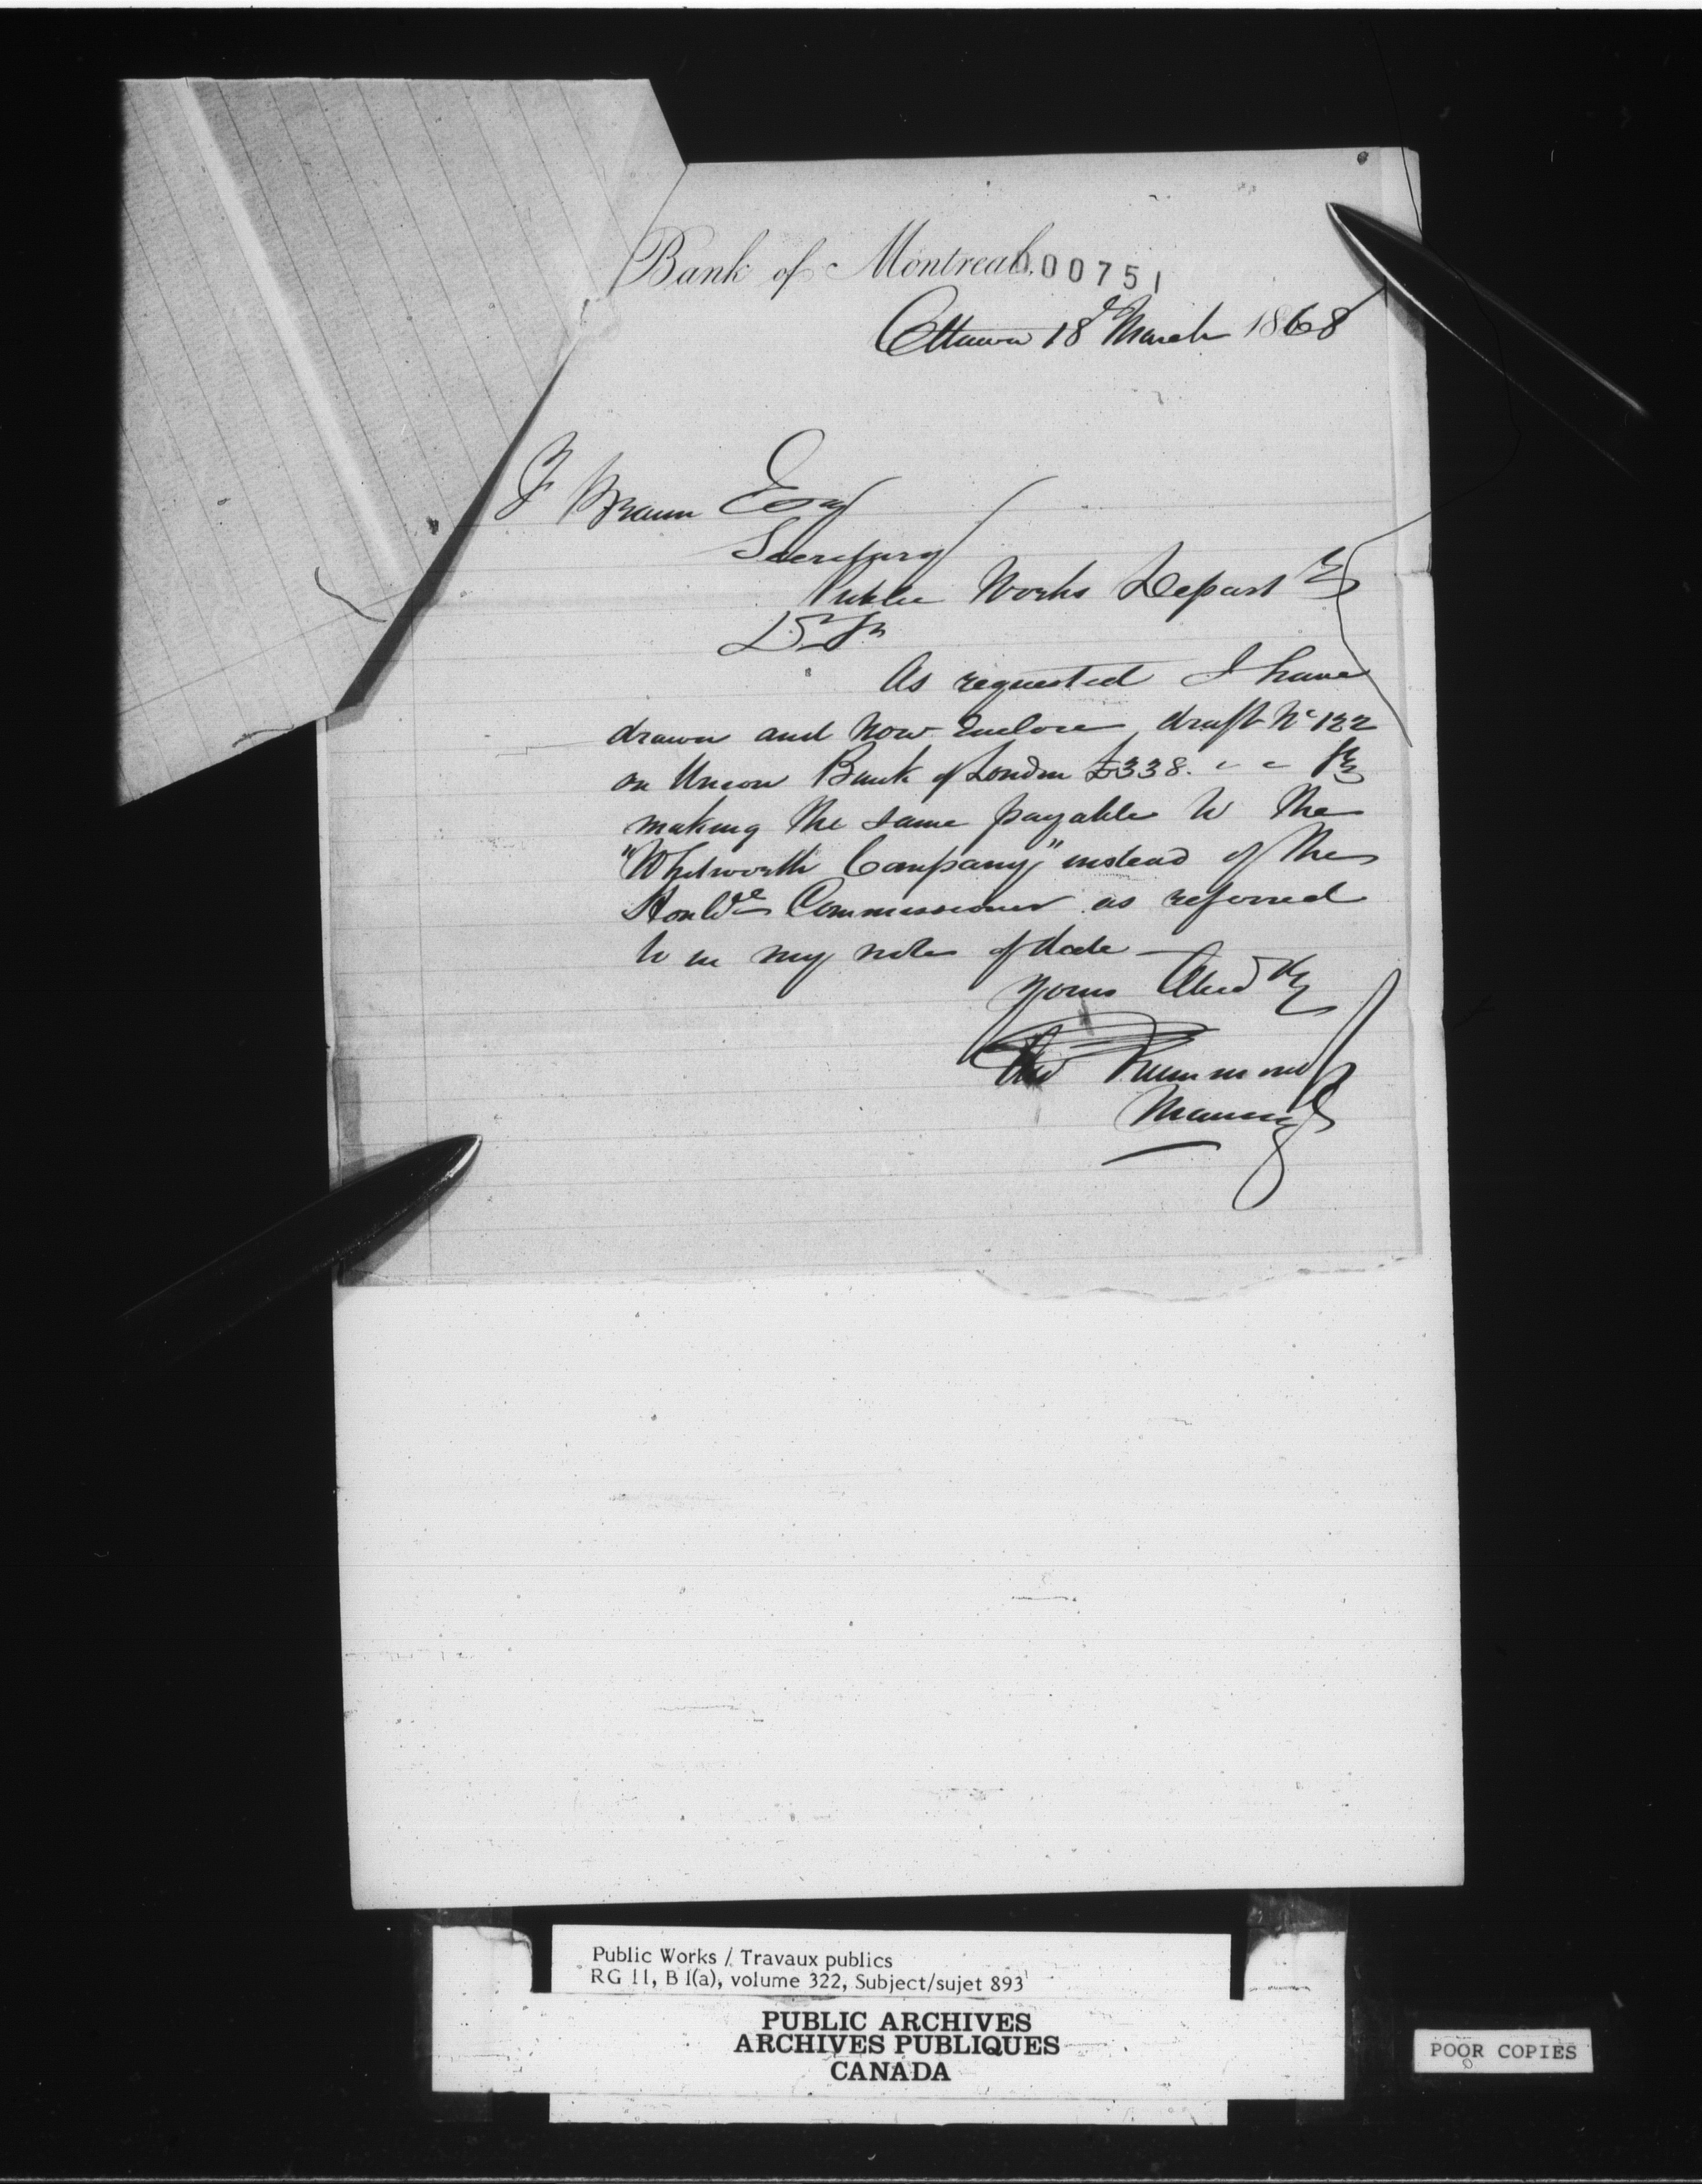 Bank of Montreal.
000751
Ottawa 18th March 1868
F Braun Esq
Secretary
Public Works Departmt
Dr Sir
As requested I have
drawn and now enclose draft No 122
on Union Bank of London £338. " " Stg
making the same payable to the
"Whitworth Company" instead of the
Honble Commissioner as referred
to in my note of date —
Yours Obedtly
Drummond
Manager
Public Works / Travaux publics
RG 11, B 1(a), volume 322, Subject/sujet 893
PUBLIC ARCHIVES
ARCHIVES PUBLIQUES
CANADA
POOR COPIES